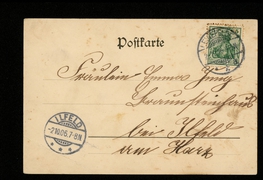 Postkarte
Fräulein Emma Jung
bei Ilfeld
am Harz
ILFELD
-7.10.06.7-8N